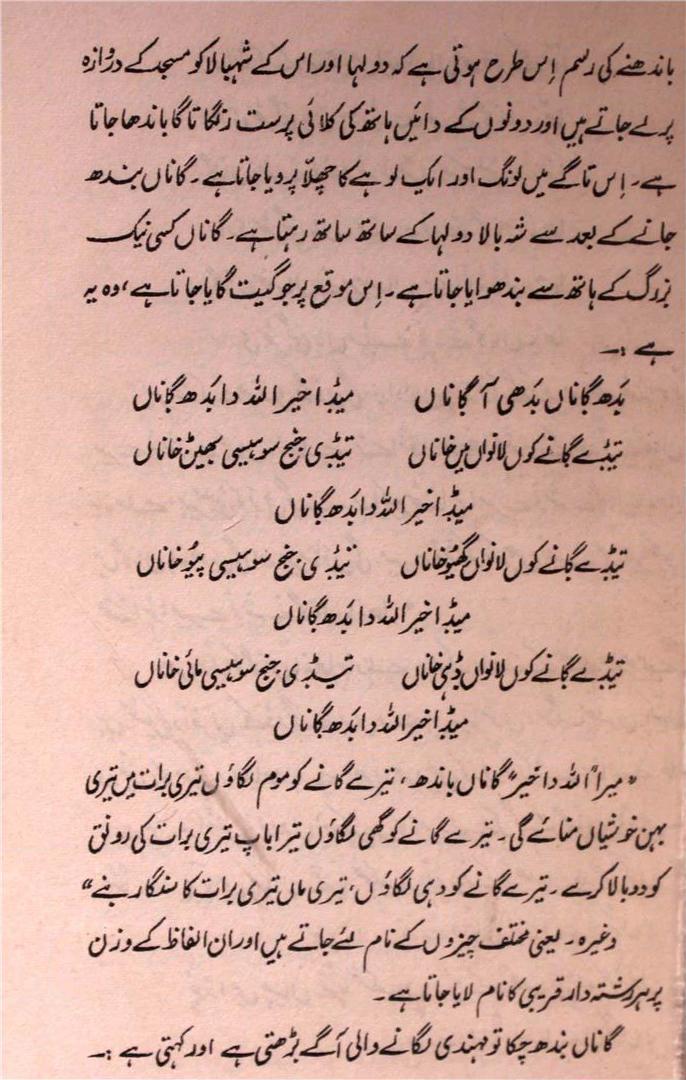 باندھنے کی رسم اِس طرح ہوتی ہے کہ دولہا اور اس کے شہبالا کو مسجد کے دروازہ
پر لے جاتے ہیں اور دونوں کے دائیں ہاتھ کی کلائی پر ست رنگا تاگا باندھا جاتا
ہے۔ اِس تاگے میں لونگ اور ایک لوہے کا چھلّا پرویا جاتا ہے۔ گاناں بندھ
جانے کے بعد سے شہ بالا دولہا کے ساتھ ساتھ رہتا ہے۔ گاناں کسی نیک
بزرگ کے ہاتھ سے بندھوایا جاتا ہے۔ اِس موقع پر جو گیت گایا جاتا ہے، وہ یہ
ہے :۔
بَدھ گاناں بَدھی آ گاناں میڈا خیر اللہ دا بَدھ گاناں
تیڈے گانے کوں لانواں مین خاناں تیڈی جنج سوہیسی بھین خاناں
میڈا خیر اللہ دا بَدھ گاناں
تیڈے گانے کوں لانواں گھیو خاناں تیڈی جنج سوہیسی پیو خاناں
میڈا خیر اللہ دا بَدھ گاناں
تیڈے گانے کوں لانواں ڈہی خاناں تیڈی جنج سوہیسی مائی خاناں
میڈا خیر اللہ دا بَدھ گاناں
"میرا "اللہ دا خیر" گاناں باندھ، تیرے گانے کو موم لگاؤں تیری برات میں تیری
بہن خوشیاں منائے گی۔ تیرے گانے کو گھی لگاؤں تیرا باپ تیری برات کی رونق
کو دوبالا کرے۔ تیرے گانے کو دہی لگاؤں، تیری ماں تیری برات کا سنگار بنے"
وغیرہ۔ یعنی مختلف چیزوں کے نام لئے جاتے ہیں اور ان الفاظ کے وزن
پر ہر رشتہ دار قریبی کا نام لایا جاتا ہے۔
گاناں بندھ چکا تو مہندی لگانے والی آگے بڑھتی ہے اور کہتی ہے :۔